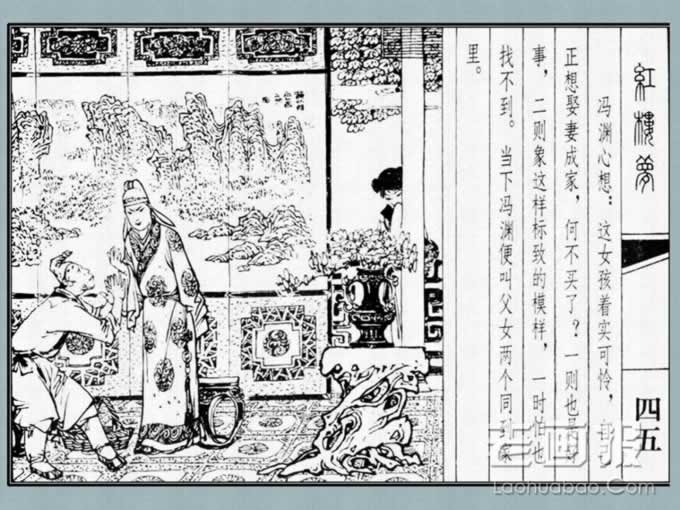 红楼梦
四五
冯渊心想：这女孩着实可怜，自己
正想娶妻成家，何不买了？一则也是好
事，二则象这样标致的模样，一时怕也
找不到。当下冯渊便叫父女两个同到家
里。
老画报
Laohuabao.Com